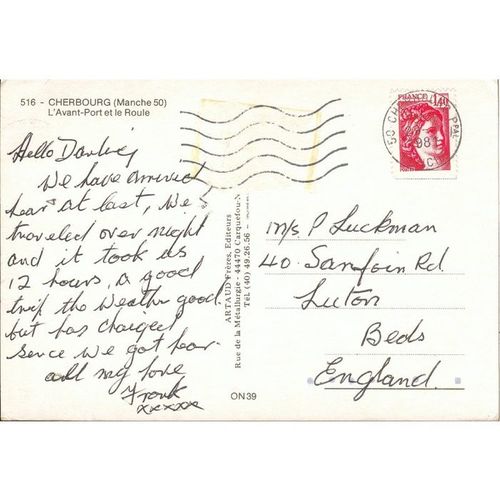 516 - CHERBOURG (Manche 50)
L'Avant-Port et le Roule
Hello Darling
We have arrived
hear at last, We
traveled over night
and it took us
12 hours, a good
trip the weather good.
but has changed
sence we got hear.
all my love
Frank
xxxxxx
ARTAUD Frères, Editeurs
Rue de la Métallurgie - 44470 Carquefou-N
Tél (40) 49.26.56
ON39
FRANCE
1,40
50 CHERBOURG PPAL
1981
m/s P Luckman
40. Sanfoin Rd.
Luton
Beds
England.